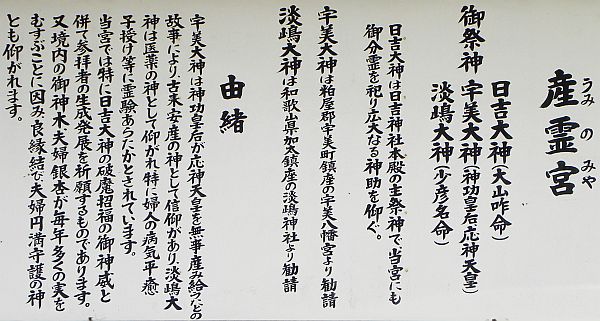 産霊宮
うみのみや
御祭神
日吉大神(大山咋命)
宇美大神(神功皇后・応神天皇)
淡嶋大神(少彦名命)
日吉大神は日吉神社本殿の主祭神で、当宮にも
御分霊を祀り広大なる神助を仰ぐ。
宇美大神は粕屋郡宇美町鎮座の宇美八幡宮より勧請
淡嶋大神は和歌山県加太鎮座の淡嶋神社より勧請
由緒
宇美大神は神功皇后が応神天皇を無事産み給ふたとの
故事により古来安産の神として信仰があり、淡嶋大
神は医薬の神として仰がれ特に婦人の病気平癒
子授け等に霊験あらたかとされています。
当宮では特に日吉大神の破魔招福の御神威と
併て参拝者の生成発展を祈願するものであります。
又境内の御神木「夫婦銀杏」が毎年多くの実を
むすぶことに因み良縁結び夫婦円満守護の神
とも仰がれます。